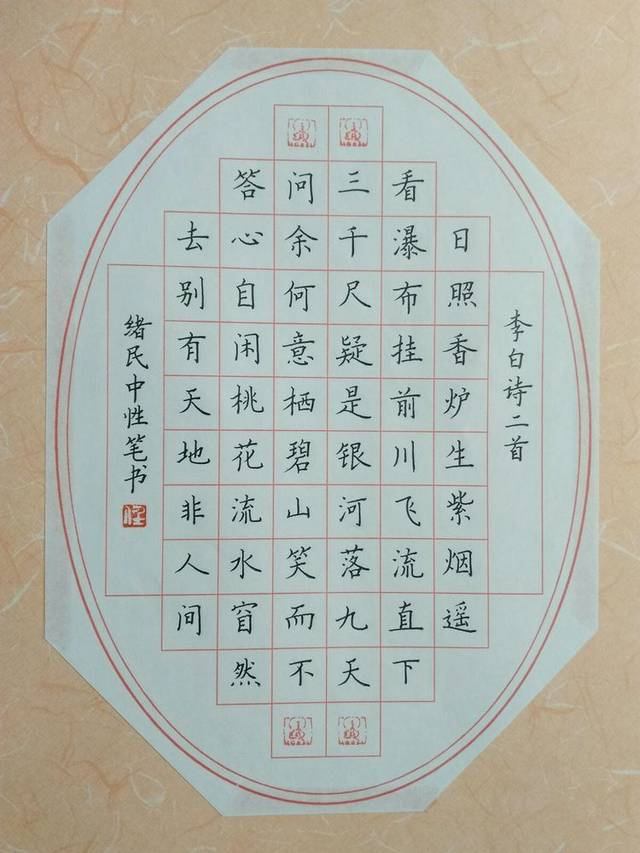 李白诗二首
日照香炉生紫烟遥
看瀑布挂前川飞流直下
三千尺疑是银河落九天
问余何意栖碧山笑而不
答心自闲桃花流水窅然
去别有天地非人间
绪民中性笔书